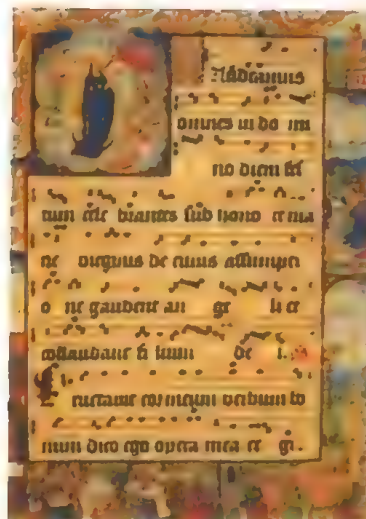 Gaudeamus
omnes in do mi
no diem fes
tum cele brantes sub hono re ma
rie virginis de cuius assumpti
o ne gaudent an ge li et
collaudant fi lium de i.
Eructavit cor meum verbum bo
num dico ego opera mea re gi.